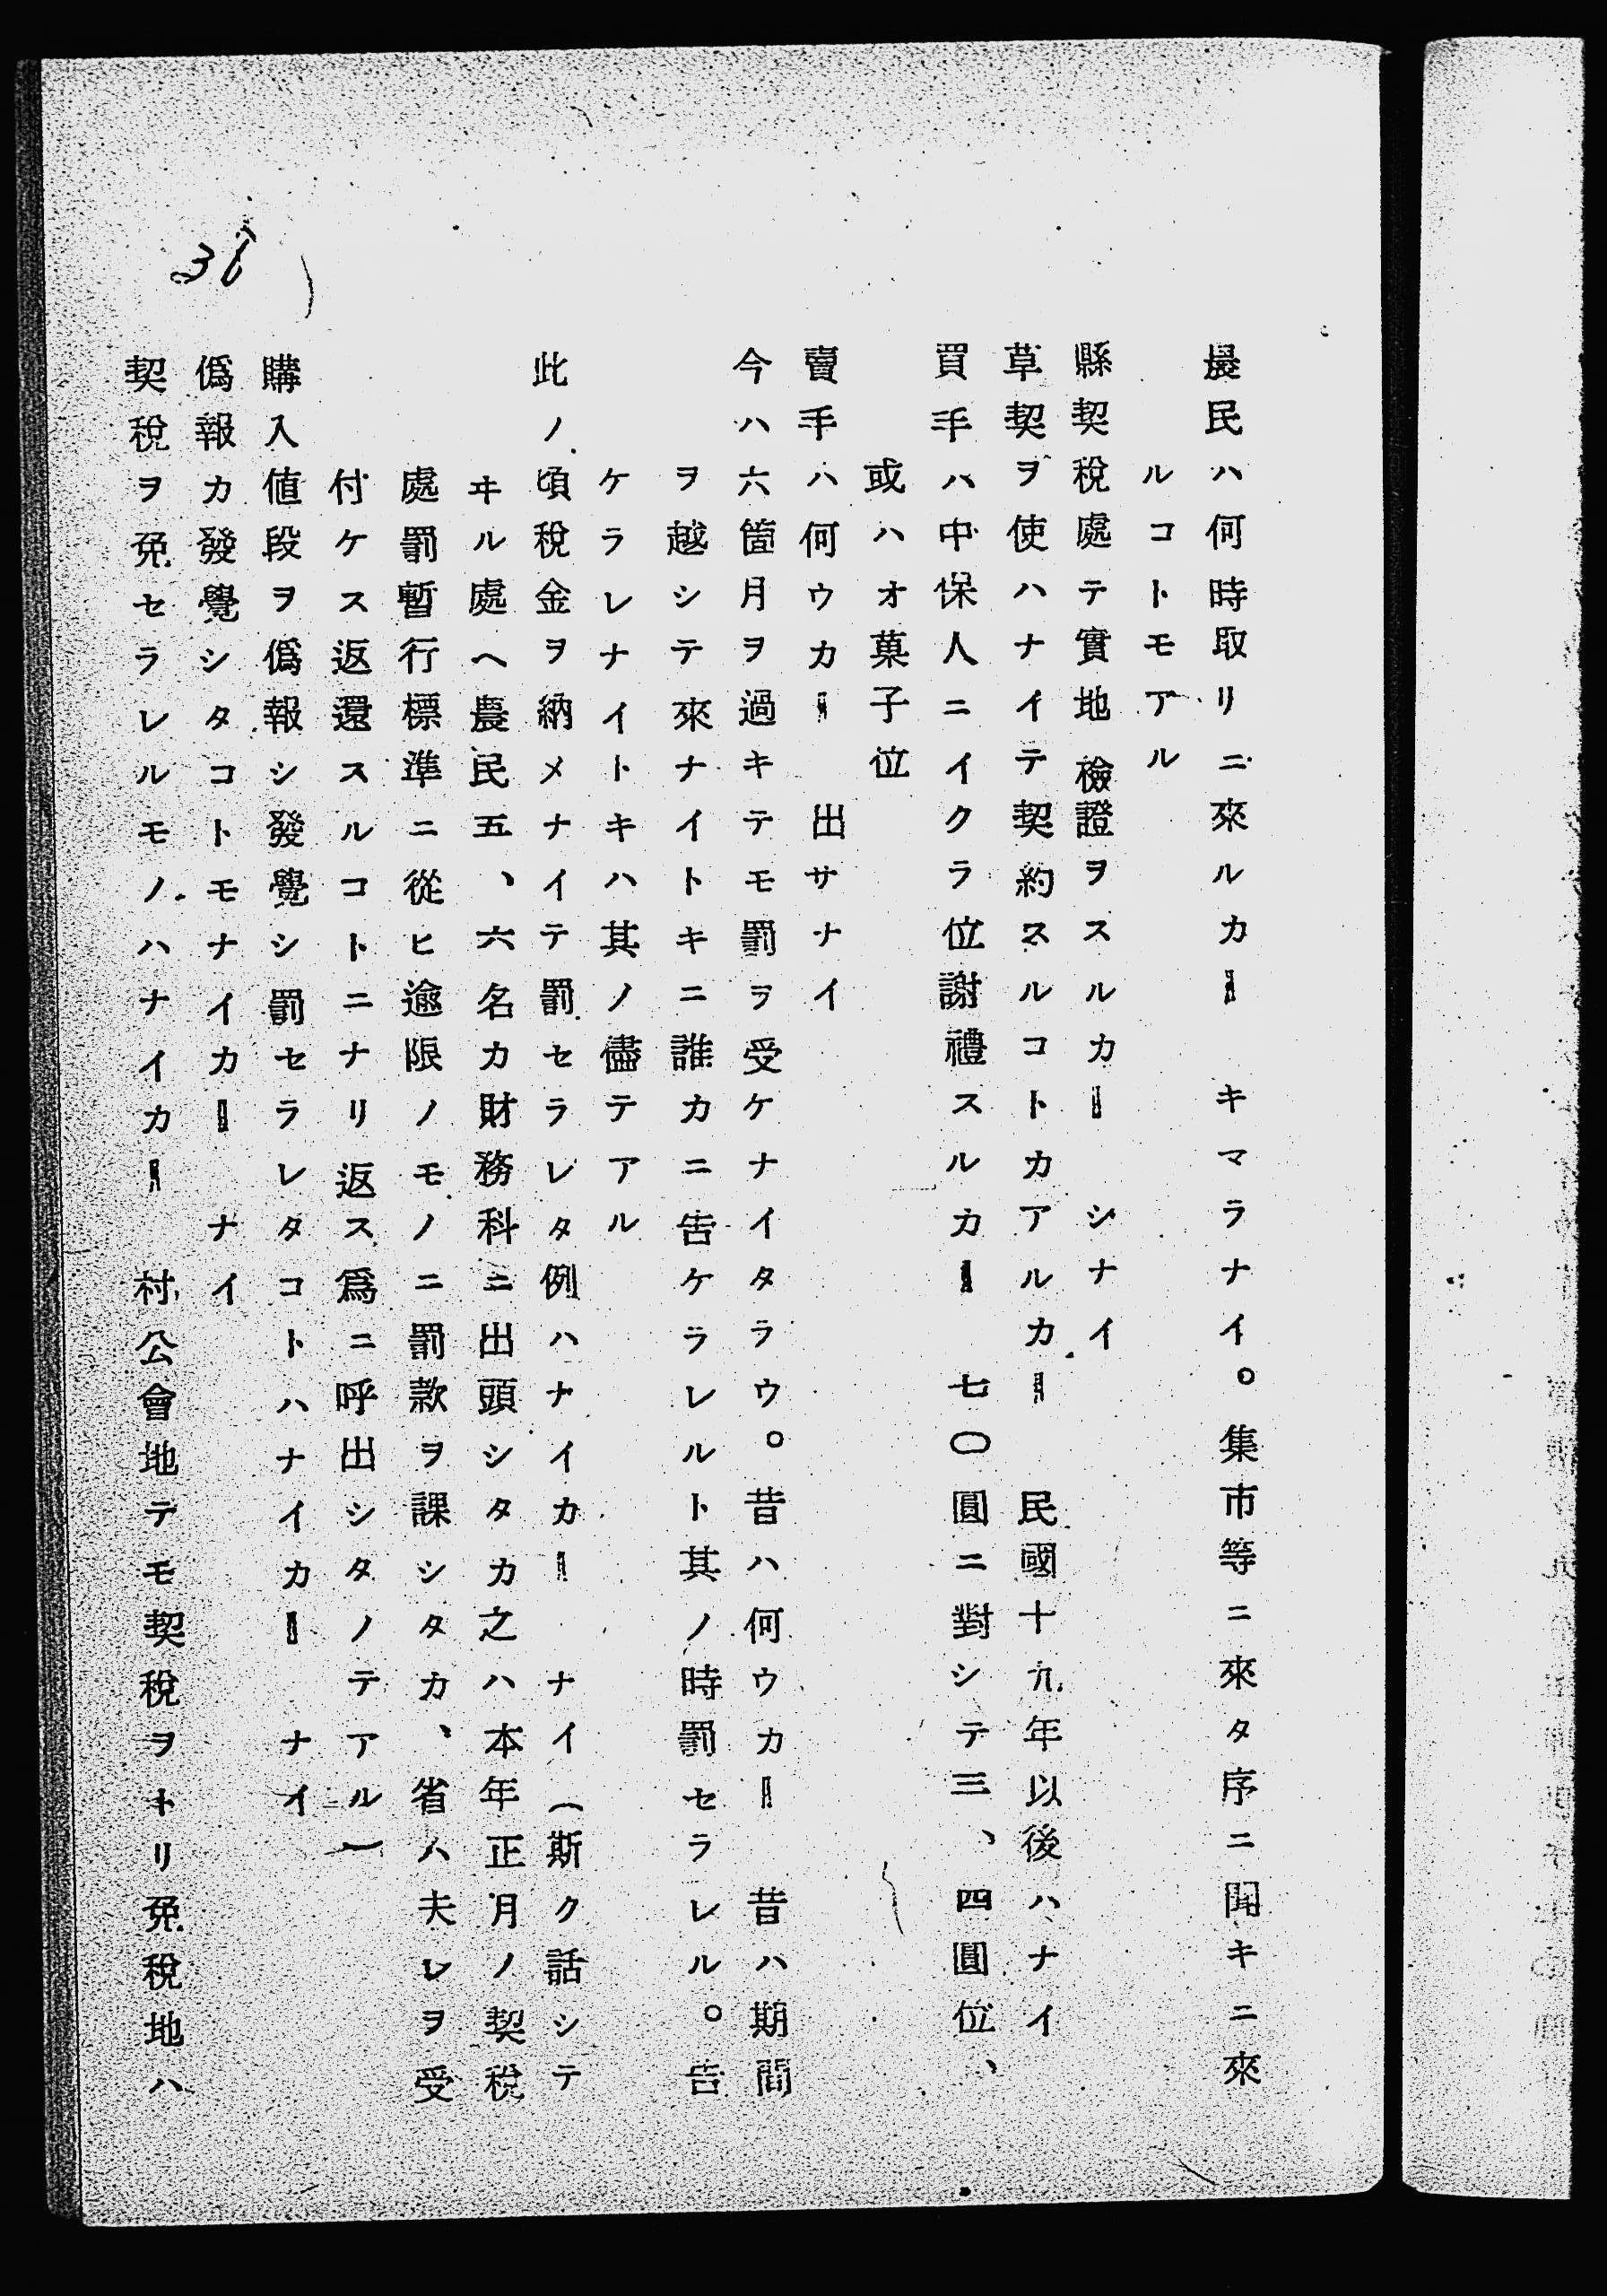 農民ハ何時取リニ來ルカー　キマラナイ。集市等ニ來タ序ニ聞キニ來
ルコトモアル
縣契稅處テ實地檢證ヲスルカー　シナイ
草契ヲ使ハナイテ契約スルコトカアルカー　民國十九年以後ハナイ
買手ハ中保人ニイクラ位謝禮スルカー　七〇圓ニ對シテ三、四圓位、
或ハオ菓子位
賣手ハ何ウカー　出サナイ
今ハ六箇月ヲ過キテモ罰ヲ受ケナイタラウ。昔ハ何ウカー　昔ハ期間
ヲ越シテ來ナイトキニ誰カニ告ケラレルト其ノ時罰セラレル。告
ケラレナイトキハ其ノ儘テアル
此ノ頃稅金ヲ納メナイテ罰セラレタ例ハナイカー　ナイ（斯ク話シテ
ヰル處ヘ農民五、六名カ財務科ニ出頭シタカ之ハ本年正月ノ契稅
處罰暫行標準ニ從ヒ逾限ノモノニ罰款ヲ課シタカ、省ハ夫レヲ受
付ケス返還スルコトニナリ返ス爲ニ呼出シタノテアル）
購入値段ヲ僞報シ發覺シ罰セラレタコトハナイカー　ナイ
僞報カ發覺シタコトモナイカー　ナイ
契稅ヲ免セラレルモノハナイカー　村公會地テモ契稅ヲトリ免稅地ハ